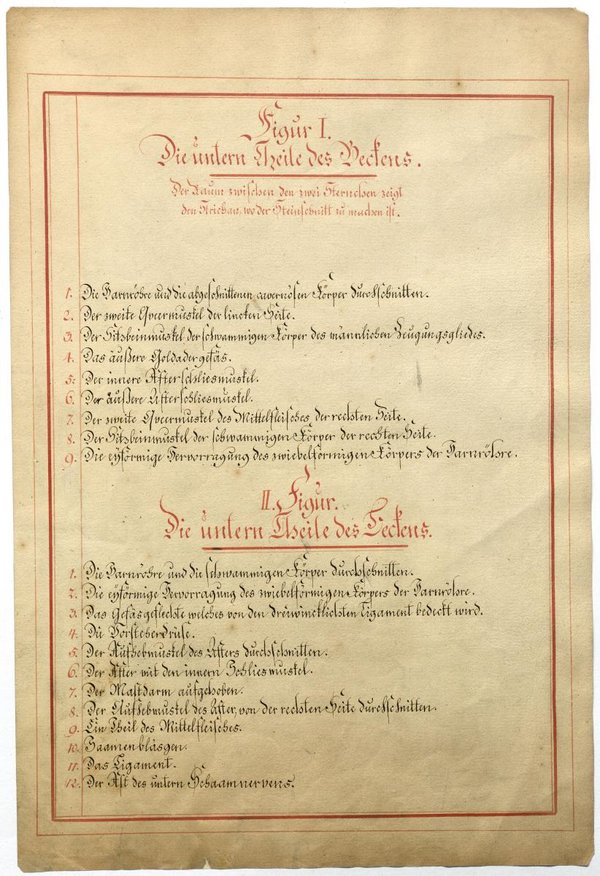 Figur I.
Die untern Theile des Beckens.
Der Raum zwischen den zwei Sternchen zeigt
den Ort an, wo der Steinschnitt zu machen ist.
1. Die Harnröhre und die abgeschnittenen cavernösen Körper durchschnitten.
2. Der zweite Queermuskel der lincken Seite.
3. Der Sitzbeinmuskel der schwammigen Körper des männlichen Zeugungsgliedes.
4. Das äußere Goldadergefäs.
5. Der innere Afterschliesmuskel.
6. Der äußere Afterschliesmuskel.
7. Der zweite Queermuskel des Mittelfleisches der rechten Seite.
8. Der Sitzbeinmuskel der schwammigen Körper der rechten Seite.
9. Die eyförmige Hervorragung des zwiebelförmigen Körpers der Harnröhre.
II. Figur.
Die untern Theile des Beckens.
1. Die Harnröhre und die schwammigen Körper durchschnitten.
2. Die eyförmige Hervorragung des zwiebelförmigen Körpers der Harnröhre.
3. Das Gefäsgeflechte welches von den dreiwincklichten Ligament bedeckt wird.
4. Die Vorsteherdrüse.
5. Der Aufhebmuskel des Afters durchschnitten.
6. Der After mit den innern Schliesmuskel.
7. Der Mastdarm aufgehoben.
8. Der Aufhebmuskel des After, von der rechten Seite durchschnitten.
9. Ein Theil des Mittelfleisches.
10. Saamenbläsgen.
11. Das Ligament.
12. Der Ast des untern Schaamnervens.